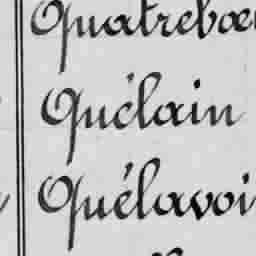 Quatrebœ
Quélain
Quélavoi